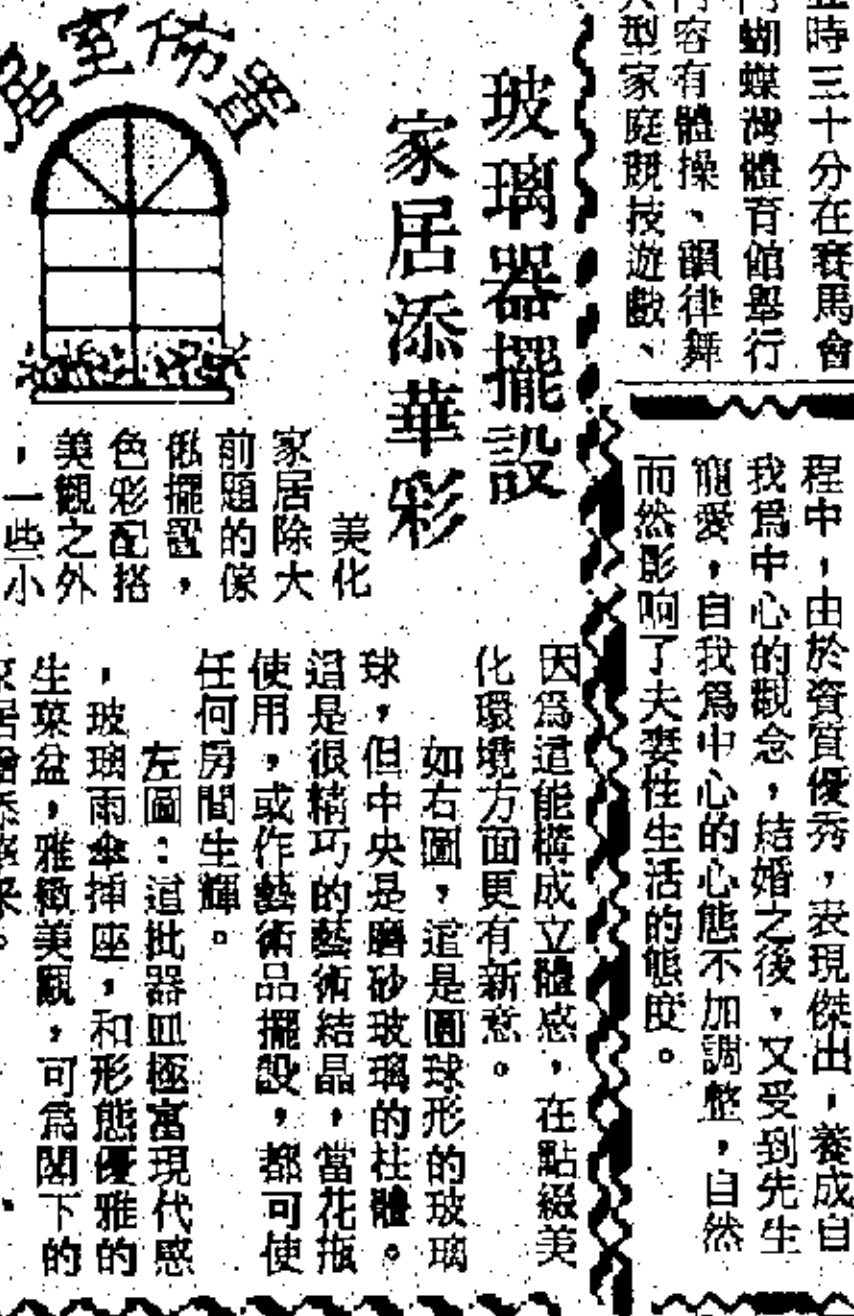 五時三十分在賽馬會
蝴蝶灣體育館舉行
內容有體操、韻律舞
大型家庭競技遊戲、
程中，由於資質優秀，表現傑出，養成自
我爲中心的觀念，結婚之後，又受到先生
寵愛，自我爲中心的心態不加調整，自然
而然影响了夫妻性生活的態度。
玻璃器擺設
家居添華彩
居室佈置
美化
家居除大
前題的傢
俬擺置，
色彩配搭
美觀之外
，一些小
因爲這能構成立體感，在點綴美
化環境方面更有新意。
如右圖，這是圓球形的玻璃
球，但中央是磨砂玻璃的柱體。
這是很精巧的藝術結晶，當花瓶
使用，或作藝術品擺設，都可使
任何房間生輝。
左圖：這批器皿極富現代感
，玻璃雨傘揷座，和形態優雅的
生菜盆，雅緻美觀，可爲閣下的